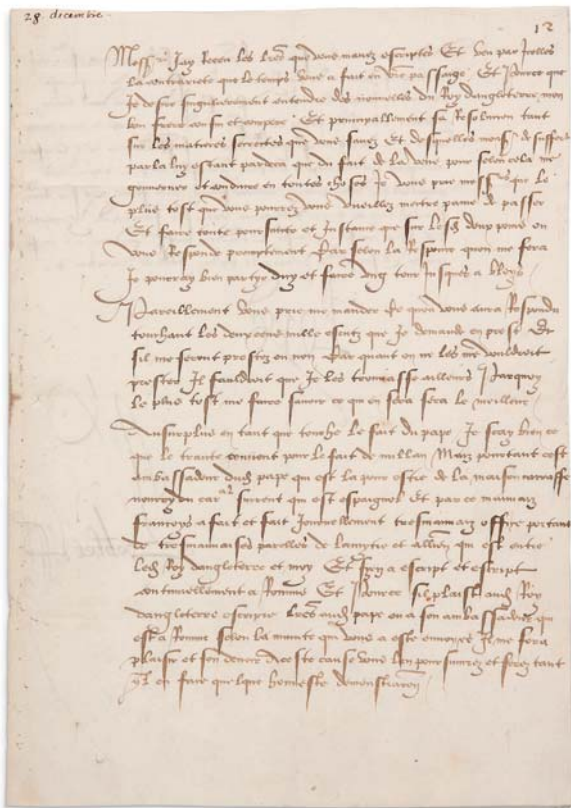 28. decembre.
12
Mons^r Jay Receu les l͞r͞es que vous mavez escriptes Et veu par Icelles
la contrariete que le temps vous a fait en v͞re passaige Et Pource que
Je desire singulierement entendre des nouvelles du Roy dangleterre mon
bon frere cousin et compere Et principallement sa Resolucion tant
sur les matieres secretes que vous savez Et desquelles mons^r de Suffort
parla luy estant pardeca que du fait de la pour selon cela me
gouverner et conduire en toutes choses Je vous prie mons^r que le
plus tost que vous pourrez vous vueillez mectre paine de passer
Et faire toute poursuite et Instance que sur lesd deux poins on
vous Responde promptement Car selon la Response quon me fera
Je pourray bien partyr dicy et faire ung tour Jusques a bloys
Pareillement vous prie me mander ce quon vous aura Respondu
touchant les deux cens mille escuz que Je demande en prest Et
sil me seront prestez ou non Car quant on ne les me vouldroit
prester Il fauldroit que Je les trouvasse ailleurs Parquoy
le plus tost me faire savoir ce qui en sera sera le meilleur
Ausurplus en tant que touche le fait du pape Je scay bien ce
que le traicte contient pour le fait de millan Mais pourtant cest
ambassadeur dud pape qui est la pour estre de la maison
nourry du car^al qui est espaignol Et par ce mauvais
francoys a fait et fait Journellement tresmauvais office portant
de tresmauvaises parolles de lamytie et allien͞ce qui est entre
led Roy dangleterre et moy Et Icy a escript et escript
continuellement a Romme Et Pource sil plaisoit aud Roy
dangleterre escripre l͞r͞es aud pape ou a son ambassadeur qui
est a Romme selon la minute qui vous a este envoyee Il me fera
plaisir et son devoir De ceste cause vous len poursuivrez et ferez tant
quil en face quelque honneste demonstracion